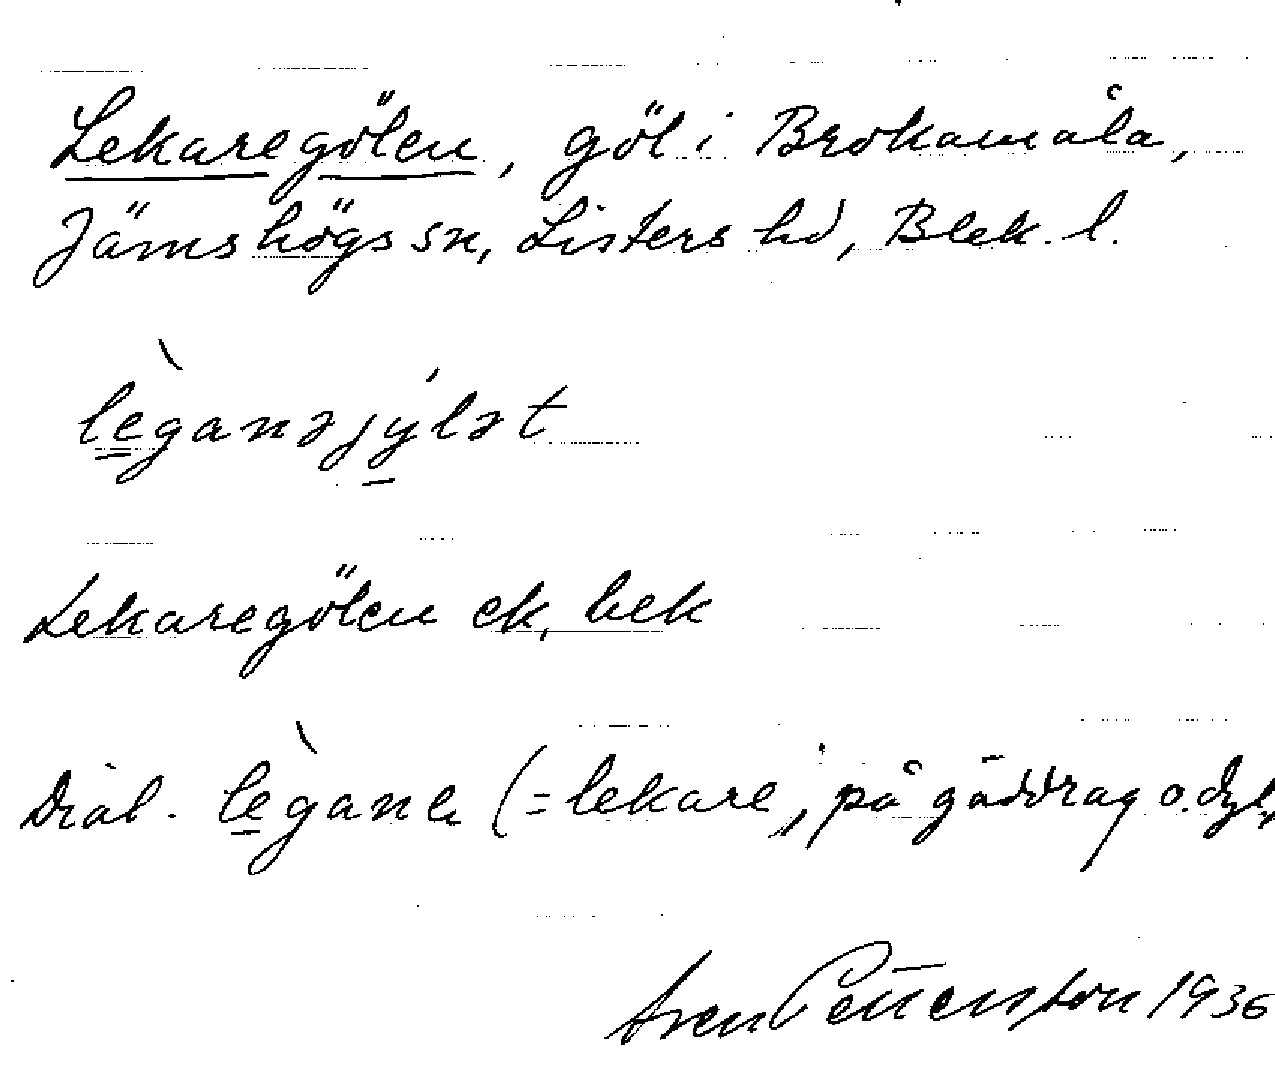 Lekaregölen, göl i Brokamåla,
Jämshögs sn, Listers hd, Blek. l.
lèganəjýlət
Lekaregölen ek, bek
Dial. lègane (= lekare, på gäddrag o. dyl.,
Sven Pettersson 1936